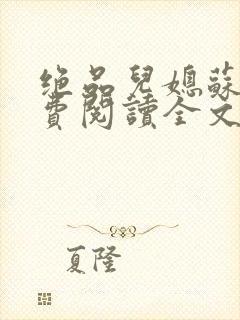 绝品兒媳蘇
費閱讀全文
夏隆